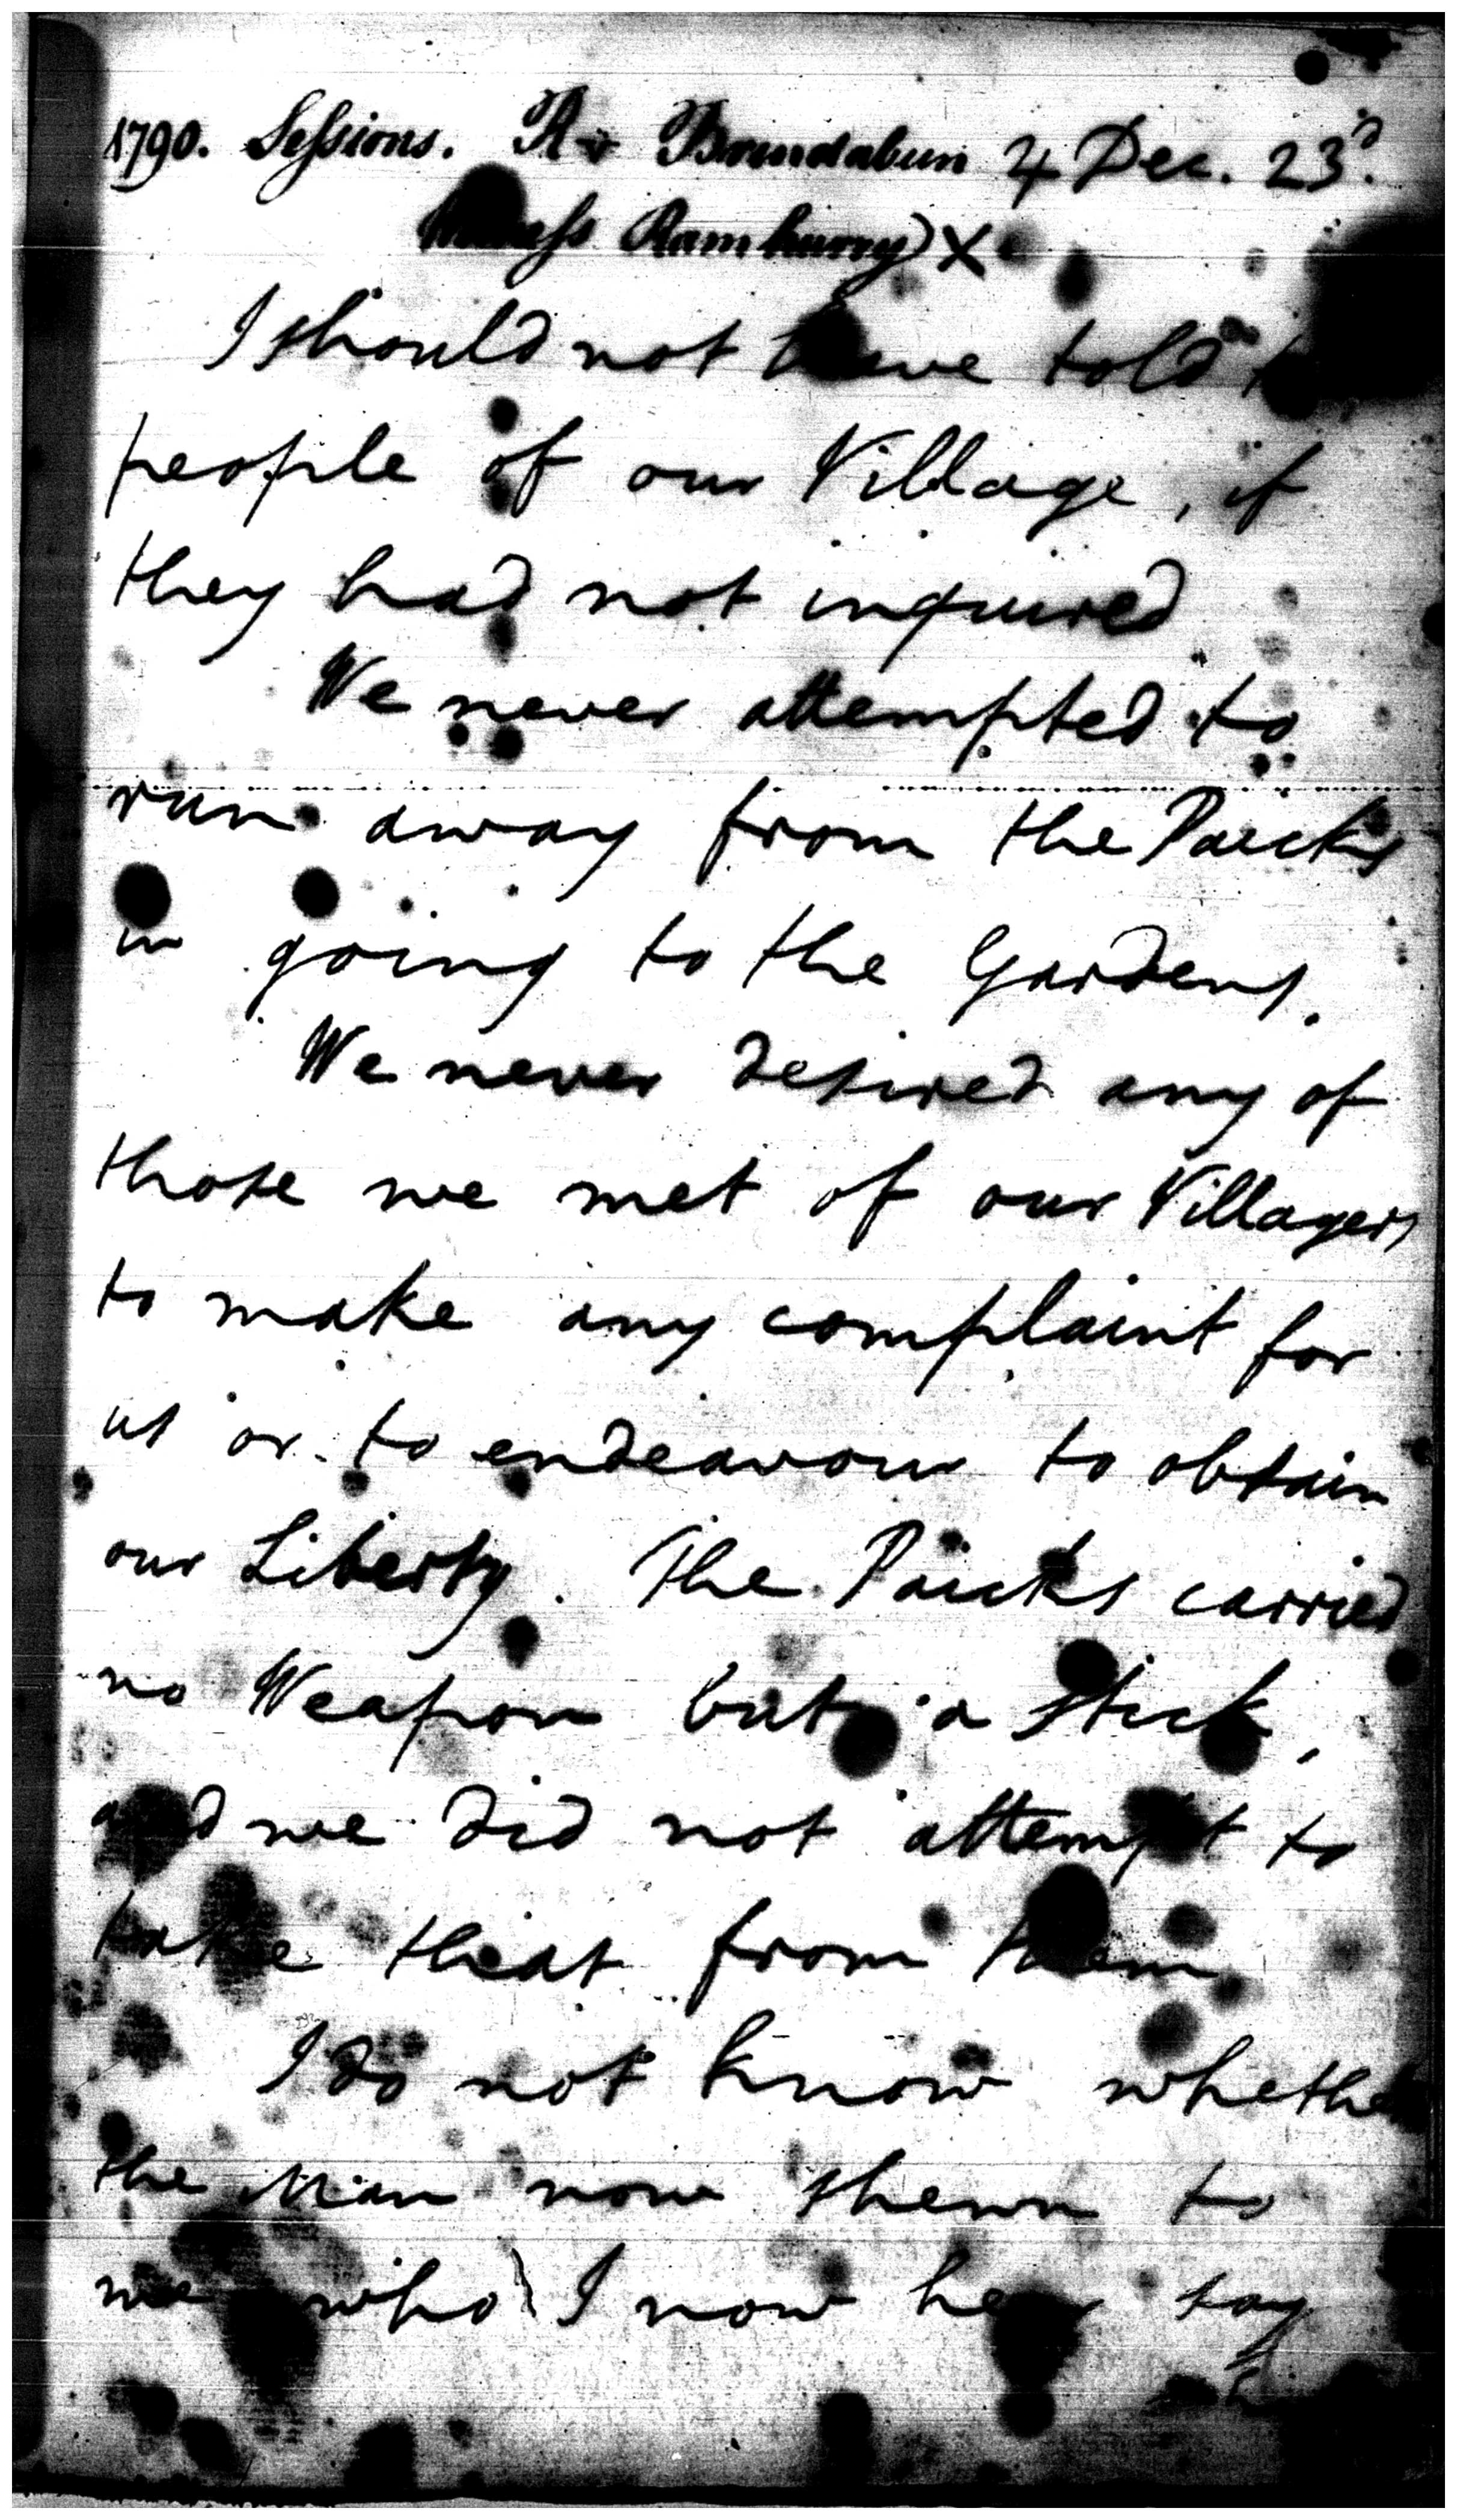 1790. Sessions. R v Brundabun 4 Dec. 23d.
Ramhurry) X
I should not have told
people of our Village, if
they had not inquired
We never attempted to
run away from the Paicks
in going to the Gardens.
We never desired any of
those we met of our Villagers
to make any complaint for
us or to endeavour to obtain
our Liberty. The Paicks carried
no Weapon but a stick,
and we did not attempt to
take that from them.
I do not know whether
the Man now shewn to
me who I now hear say